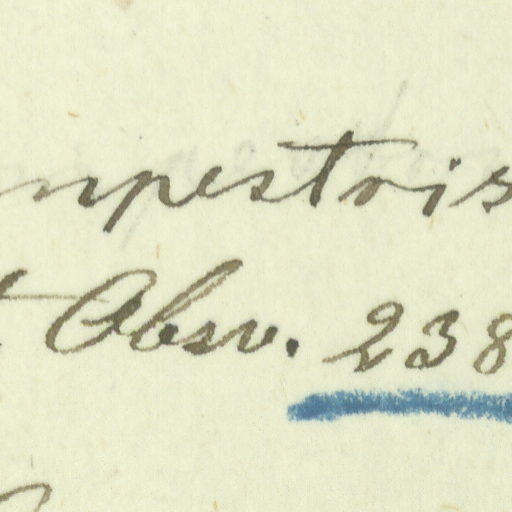 mpestris
t Obsv. 238